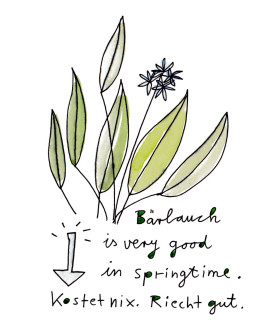 Bärlauch
is very good
in springtime.
Kostet nix. Riecht gut.